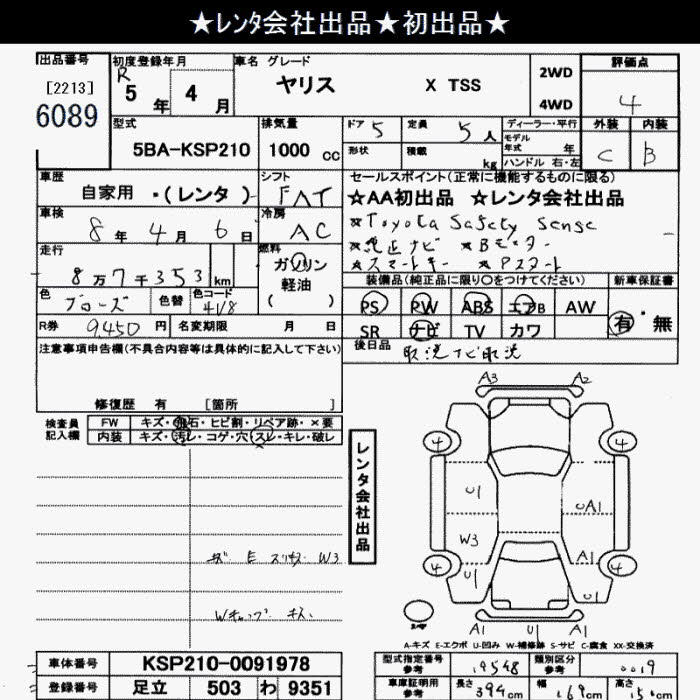 ★レンタ会社出品★初出品★
出品番号 初度登録年月 車名 グレード 評価点
[2213] R 5 年 4 月 ヤリス X TSS 2WD 4
6089 4WD
型式 排気量 ドア 5 定員 5人 ディーラー・平行 外装 内装
5BA-KSP210 1000 cc 形状 積載 kg モデル年式 年 C B
ハンドル 右・左
車歴 シフト セールスポイント(正常に機能するものに限る)
自家用 ・(レンタ) FAT ★AA初出品 ★レンタ会社出品
車検 冷房 ★Toyota Safety Sense
8 年 4 月 6 日 AC ★純正ナビ ★Bモニター
走行 燃料 ★スマートキー ★Pスタート
8万7千353 km ガソリン 装備品(純正品に限り○をつけてください) 新車保証書
軽油
( )
色 ブロンズ 色替 色コード 4V8 PS PW ABS エアB AW 有・無
R券 9,450 円 名変期限 月 日 SR ナビ TV カワ
注意事項申告欄(不具合内容等は具体的に記入して下さい) 後日品 取説ナビ取説
修復歴 有 [箇所 ]
検査員 FW キズ・飛石・ヒビ割・リペア跡・×要
記入欄 内装 キズ・汚レ・コゲ・穴・スレ・キレ・破レ
レンタ会社出品
A3 A2
4 4
U1 UA1
W3 A1
4 4
U1 U1
A1 U1 A1
W3
キズ
A-キズ E-エクボ U-凹み W-補修跡 S-サビ C-腐食 XX-交換済
車体番号 KSP210-0091978 型式指定番号 参考 19548 類別区分 参考 0019
登録番号 足立 503 わ 9351 車庫証明用 参考 長さ 394 cm 幅 169 cm 高さ 150 cm